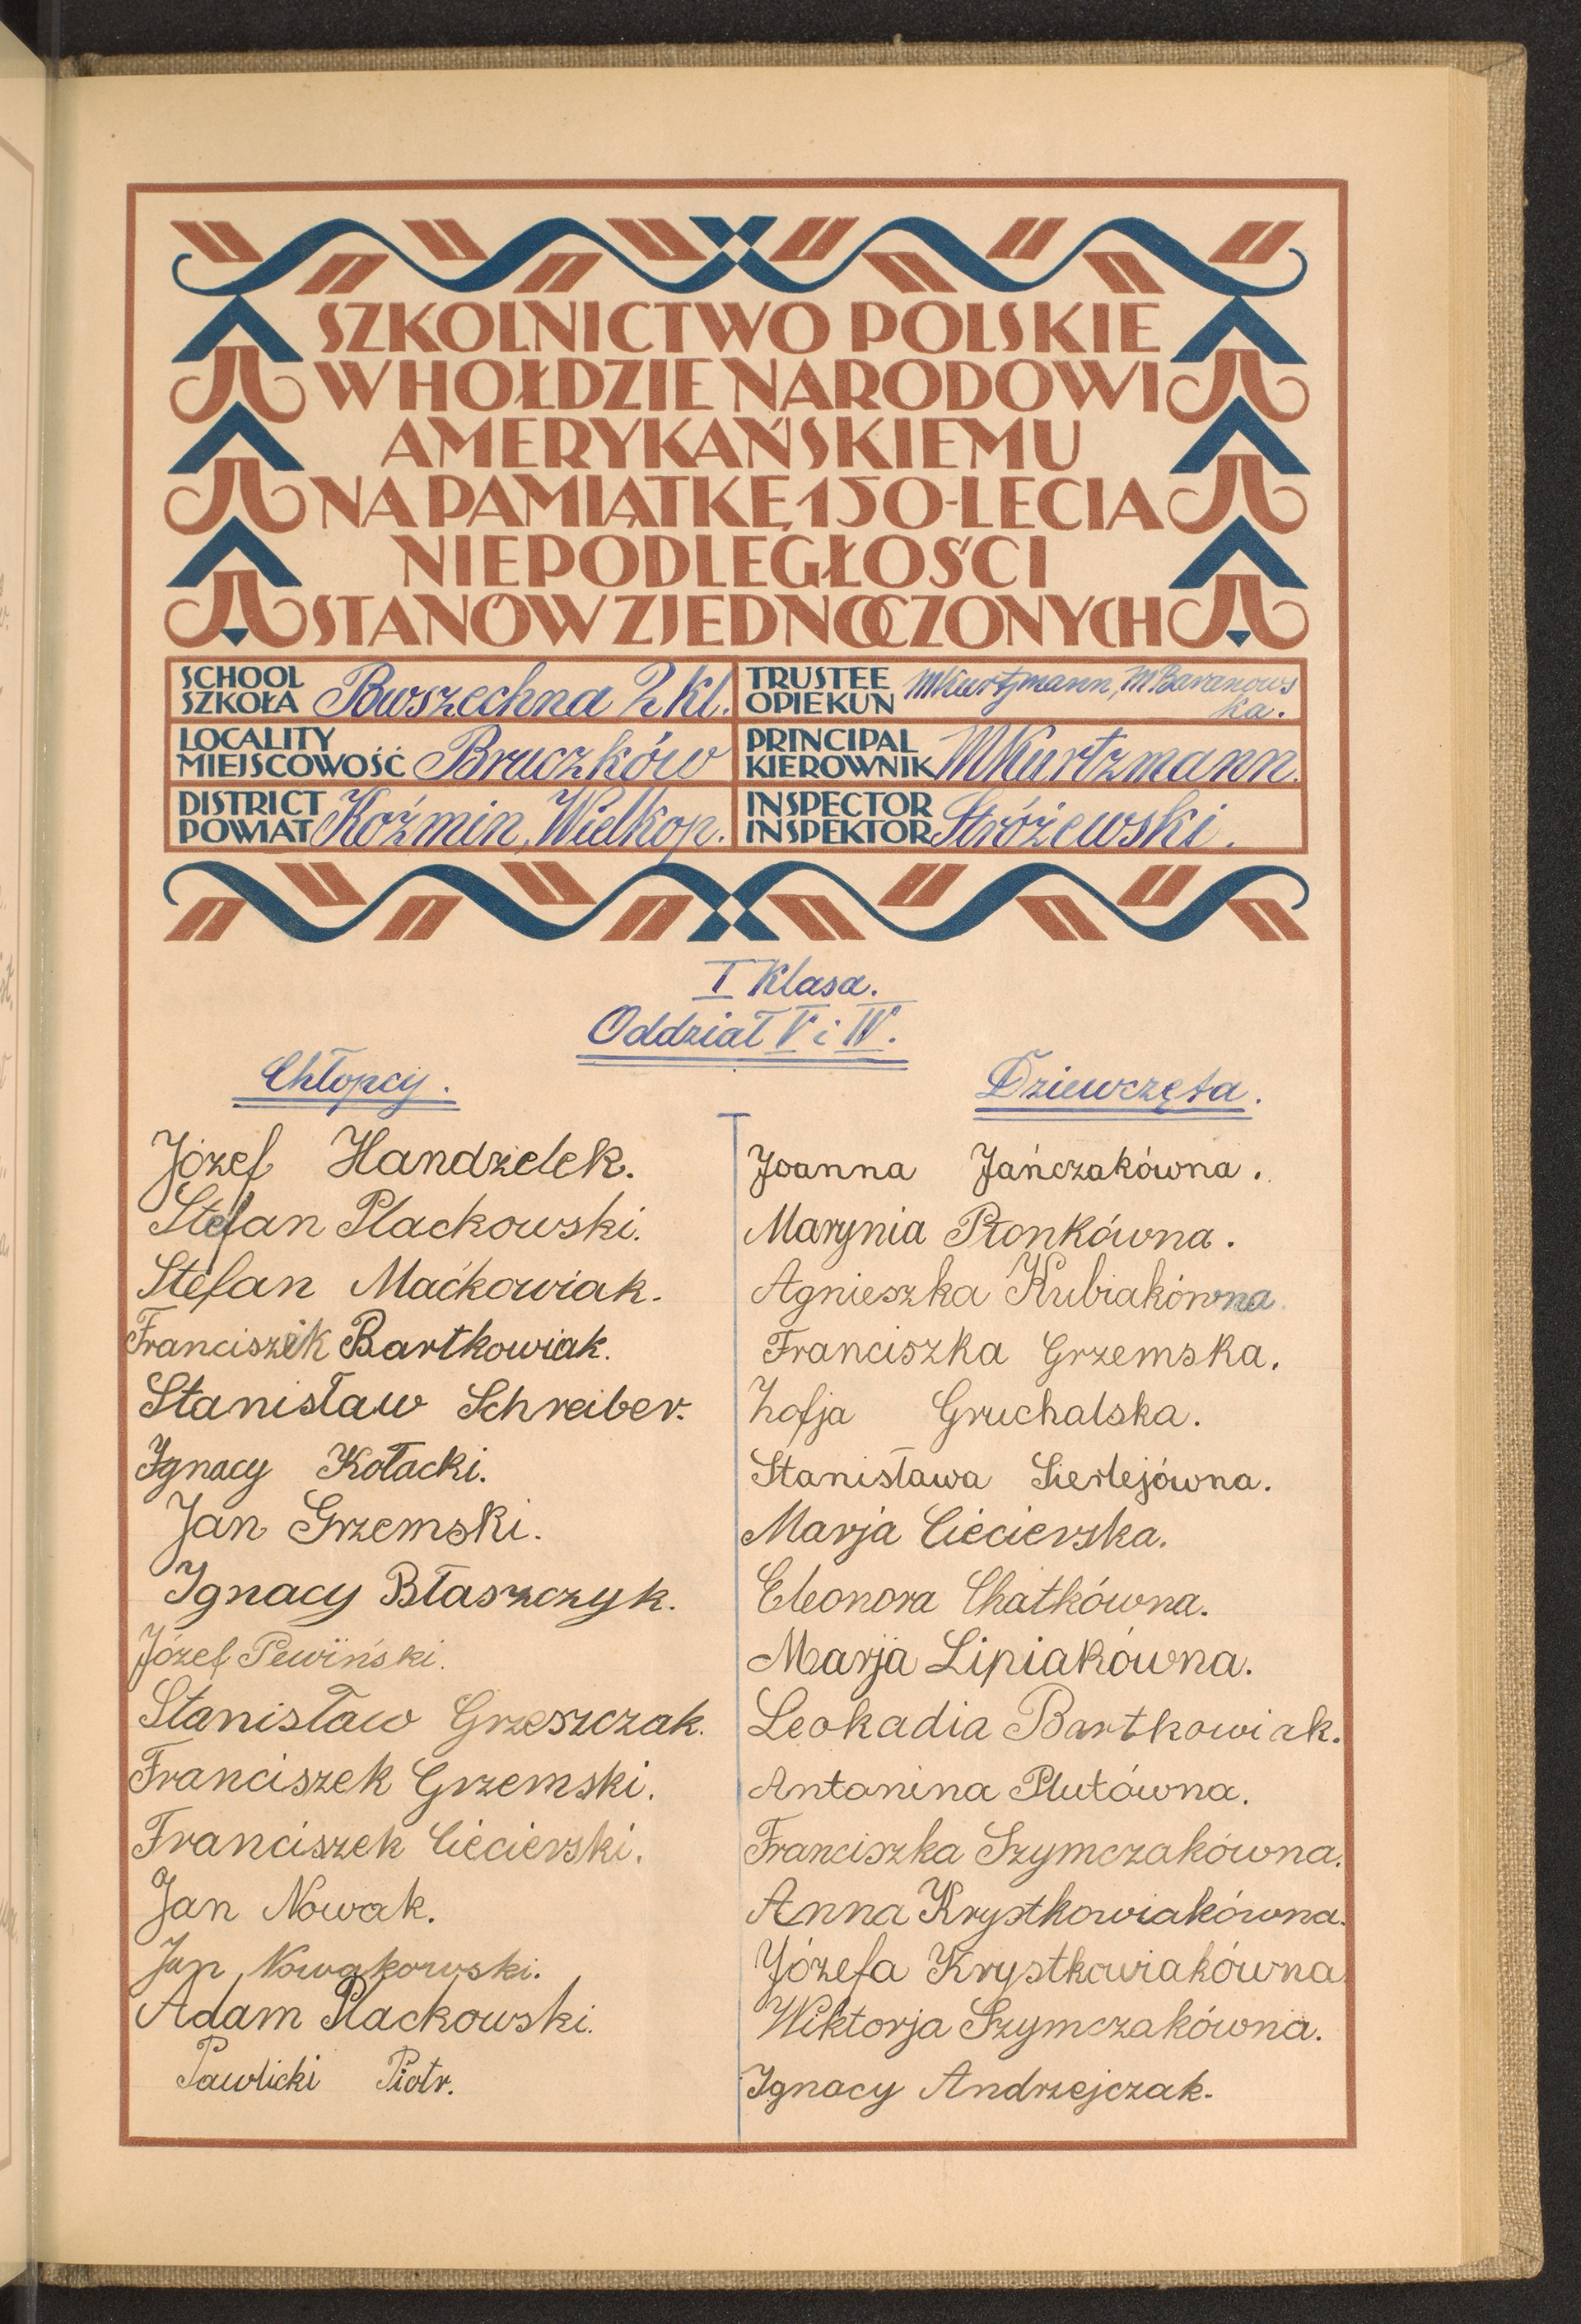 SZKOLNICTWO POLSKIE
W HOŁDZIE NARODOWI
AMERYKAŃSKIEMU
NA PAMIĄTKĘ 150-LECIA
NIEPODLEGŁOŚCI
STANÓW ZJEDNOCZONYCH
SCHOOL
SZKOŁA Powszechna 2 kl.
TRUSTEE
OPIEKUN MKurtzmann, M Baranows
ka.
LOCALITY
MIEJSCOWOŚĆ Bruczków
PRINCIPAL
KIEROWNIK MKurtzmann.
DISTRICT
POWIAT Koźmin, Wielkop.
INSPECTOR
INSPEKTOR Stróżewski.
I Klasa.
Oddział V i IV.
Chłopcy.
Józef Handzelek.
Stefan Plackowski.
Stefan Maćkowiak.
Franciszek Bartkowiak.
Stanisław Schreiber.
Ignacy Kołacki.
Jan Grzemski.
Ignacy Błaszczyk.
Józef Pewiński.
Stanisław Grzeszczak.
Franciszek Grzemski.
Franciszek Ciecierski.
Jan Nowak.
Jan Nowakowski.
Adam Plackowski.
Pawlicki Piotr.
Dziewczęta.
Joanna Jańczakówna.
Marynia Płonkówna.
Agnieszka Kubiakówna.
Franciszka Grzemska.
Zofja Gruchalska.
Stanisława Sierlejówna.
Marja Ciecierska.
Eleonora Chatkówna.
Marja Lipiakówna.
Leokadia Bartkowiak.
Antonina Plutówna.
Franciszka Szymczakówna.
Anna Krystkowiakówna.
Józefa Krystkowiakówna
Wiktorja Szymczakówna.
Ignacy Andrzejczak.